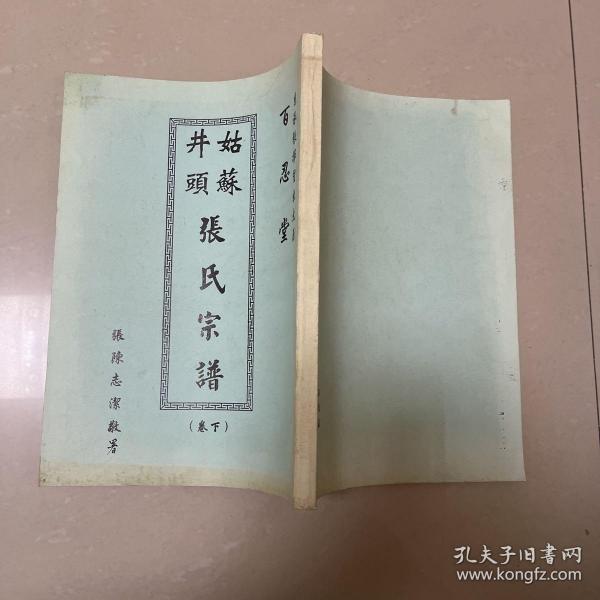 百忍堂
姑蘇
井頭
張氏宗譜
（卷下）
張陳志潔敬署
孔夫子旧书网
www.kongfz.com